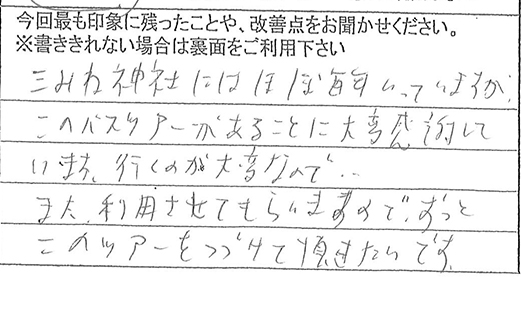 今回最も印象に残ったことや、改善点をお聞かせください。
※書ききれない場合は裏面をご利用下さい
三みね神社にはほぼ毎年いっていますが、
このバスツアーがあることに大変感謝して
います。行くのが大変なので…
また、利用させてもらいますので、ずっと
このツアーをつづけて頂きたいです。